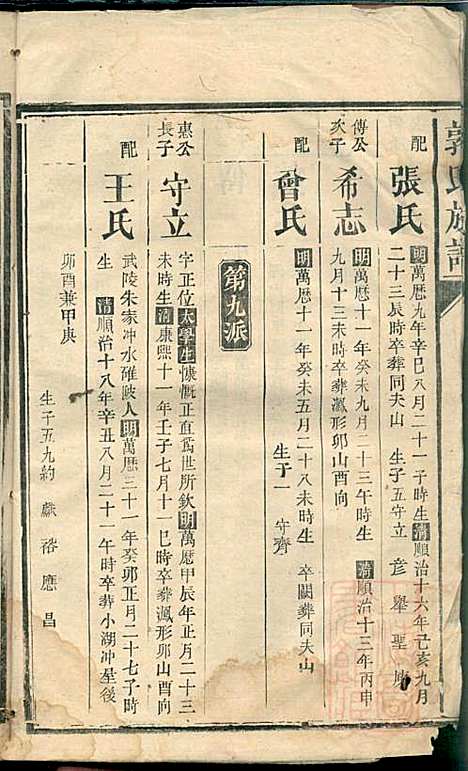 郭氏族譜
配
張氏
明萬曆九年辛巳八月二十一子時生清順治十六年己亥九月
二十三辰時卒葬同夫山 生子五守立 彥 舉 聖
傳公
次子
希志
明萬曆十一年癸未九月二十三午時生 清順治十三年丙申
九月十三未時卒葬瀛形卯山酉向
配
曾氏
明萬曆十一年癸未五月二十八未時生 卒闕葬同夫山
生子一 守齊
第九派
惠公
長子
守立
字正位太學生慷慨正直爲世所欽明萬曆甲辰年正月二十三
未時生清康熙十一年壬子七月十一巳時卒葬瀛形卯山酉向
配
王氏
武陵朱家冲水碓陂人明萬曆三十一年癸卯正月二十七子時
生 清順治十八年辛丑八月二十一年時卒葬小湖冲屋後
卯酉兼甲庚
生子五九約 麒 裕 應 昌